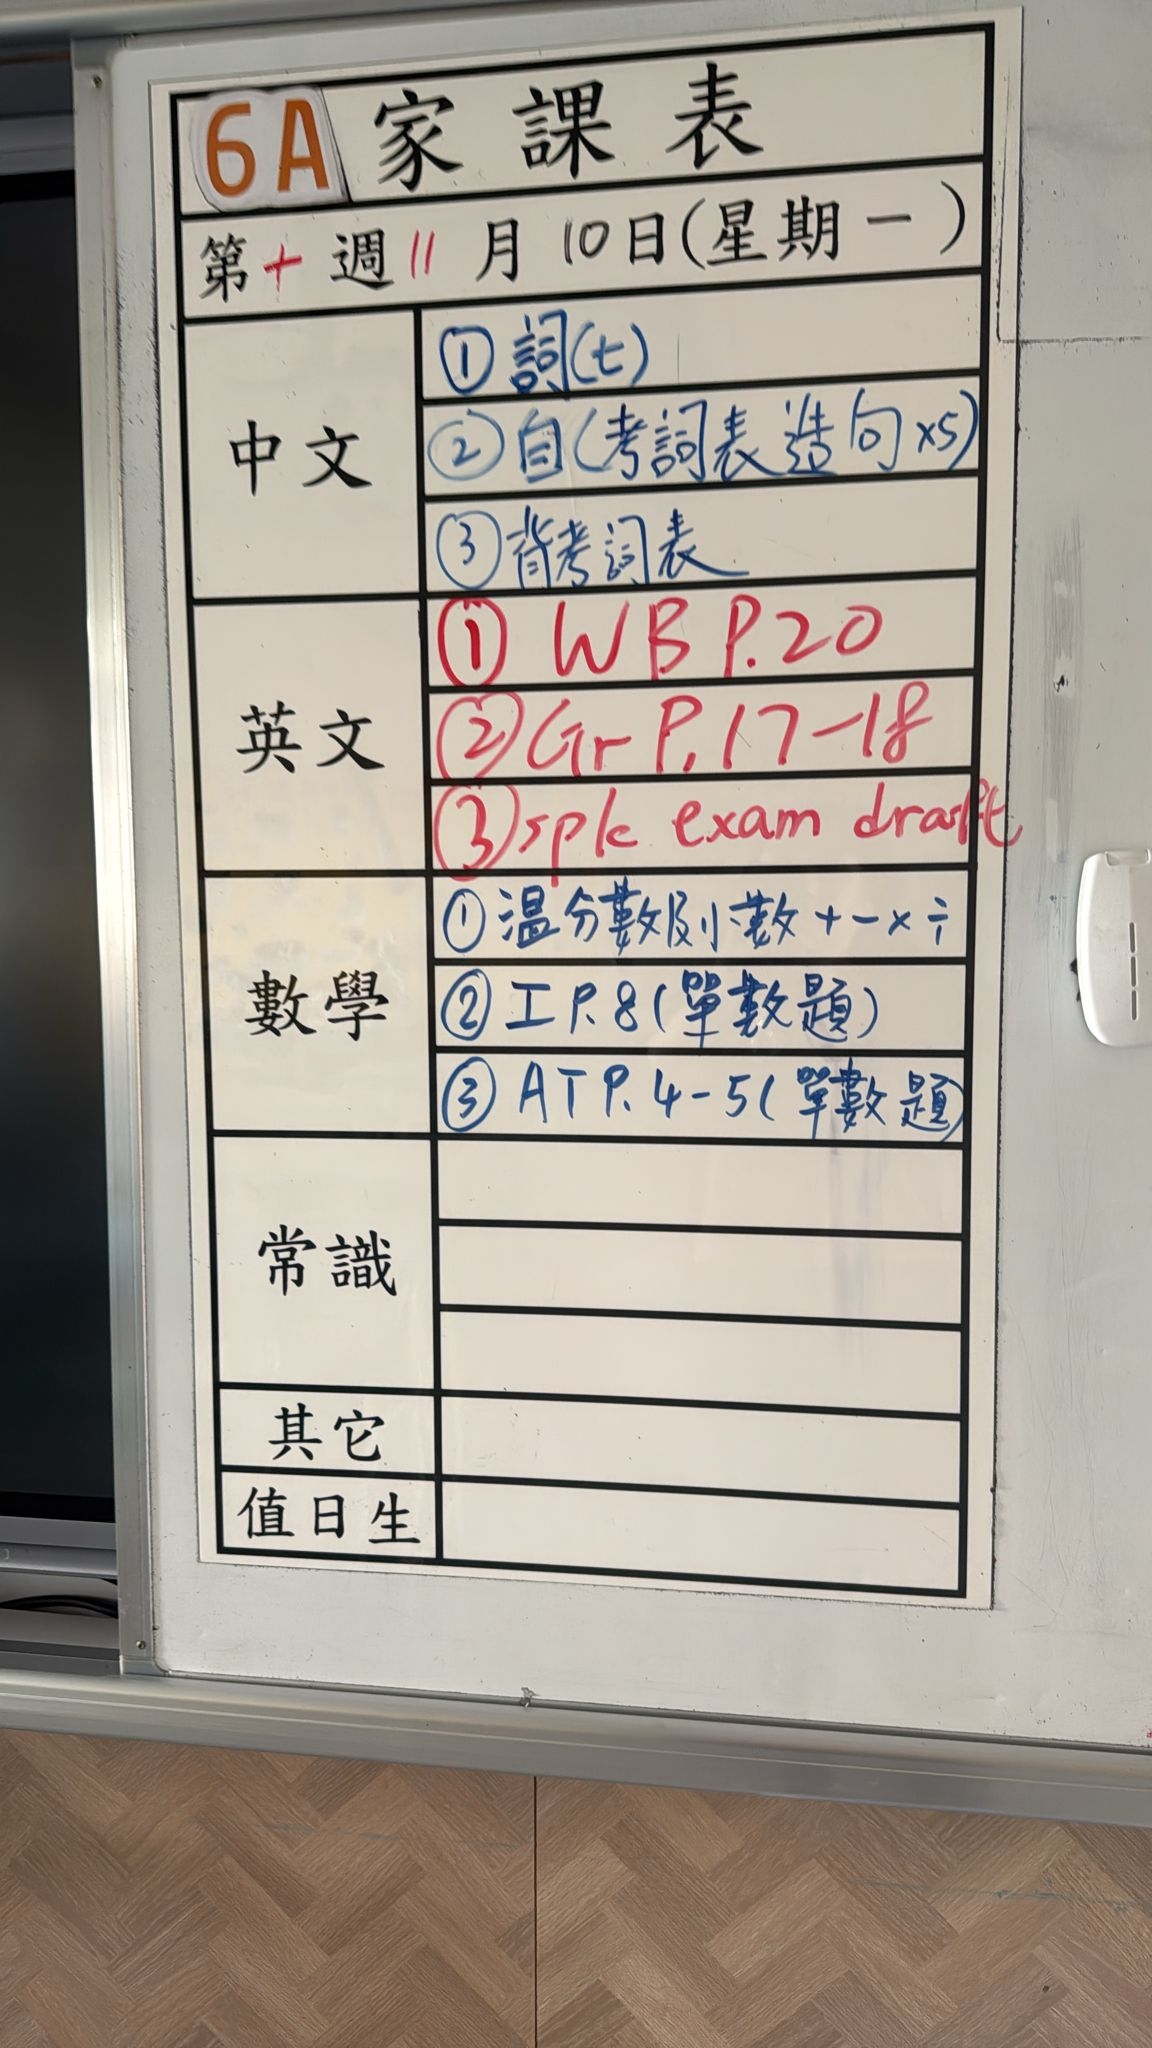 6A 家課表
第十週 11 月 10 日(星期一)
中文
① 詞(七)
② 自(考詞表造句x5)
③ 背考詞表
英文
① WB P.20
② Gr P.17-18
③ spk exam draft
數學
① 溫分數及小數 + - x ÷
② 工 P.8 (單數題)
③ AT P.4-5 (單數題)
常識
其它
值日生